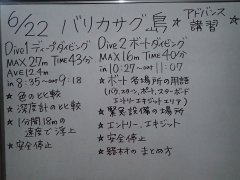 6/22 バリカサグ島
★アドバンス
講習★
Dive1 ディープダイビング
MAX27m TIME43分
AVE12.4m
in 8:35〜out9:18
★色のヒヒ較
★深度計のヒヒ較
★1分間18mの
速度で浮上
★安全停止
Dive2 ボートダイビング
MAX16m TIME40分
in 10:27〜out11:07
★ボート各場所の用語
(バウ、スターン、ポート、スターボード
エントリーエキジットエリア)
★緊急設備の場所
★エントリー、エキジット
★安全停止
★器材のまとめ方